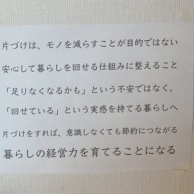 片づけは、モノを減らすことが目的ではない
安心して暮らしを回せる仕組みに整えること
「足りなくなるかも」という不安ではなく、
「回せている」という実感を持てる暮らしへ
片づけをすれば、意識しなくても節約につながる
暮らしの経営力を育てることになる